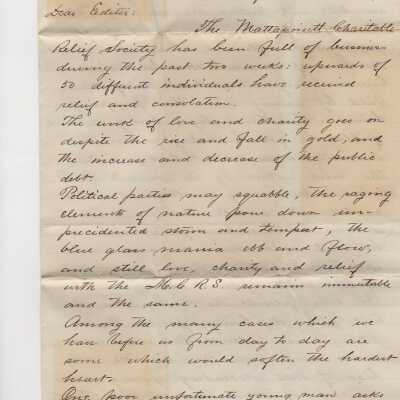 Dear Editor:
The Mattapoisett Charitable
Relief Society has been full of business
during the past two weeks: upwards of
50 different individuals have received
relief and consolation.
The work of love and charity goes on
despite the rise and fall in gold, and
the increase and decrease of the public
debt.
Political parties may squabble, the raging
elements of nature pour down un-
precidented storm and tempest, the
blue glass mania ebb and flow,
and still love, charity and relief
with the M.C.R.S. remains immutable
and the same.
Among the many cases which we
have before us from day to day are
some which would soften the hardest
heart.
One poor unfortunate young man asks